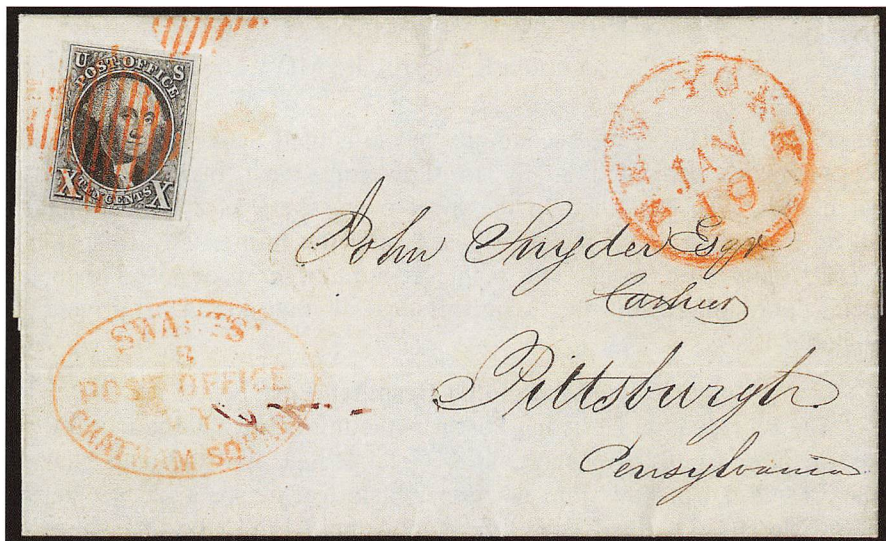 U S
POST OFFICE
X TEN CENTS X
NEW-YORK
JAN
19
John Snyder Esqr
Cashier
Pittsburgh
Pensylvania
SWARTS'
POST OFFICE
N.Y.
CHATHAM SQUARE